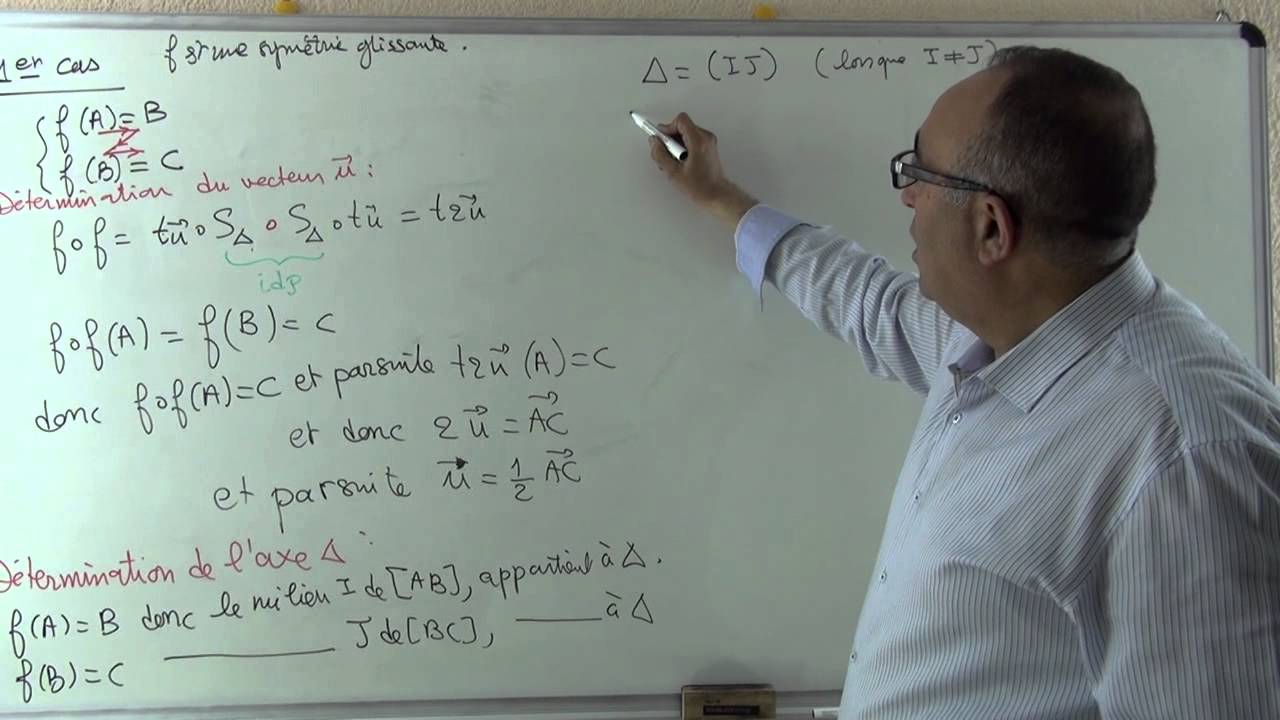 1er cas f est une symétrie glissante.
{ f(A) = B
f(B) = C
Détermination du vecteur u⃗ :
fof = tu⃗ o SΔ o SΔ o tu⃗ = t2u⃗
idP
fof(A) = f(B) = C
donc fof(A) = C et parsuite t2u⃗ (A) = C
et donc 2u⃗ = AC⃗
et parsuite u⃗ = 1/2 AC⃗
Détermination de l'axe Δ :
f(A) = B donc le milieu I de [AB], appartient à Δ.
f(B) = C ______ J de [BC], ______ à Δ
Δ = (IJ) (lorsque I ≠ J)